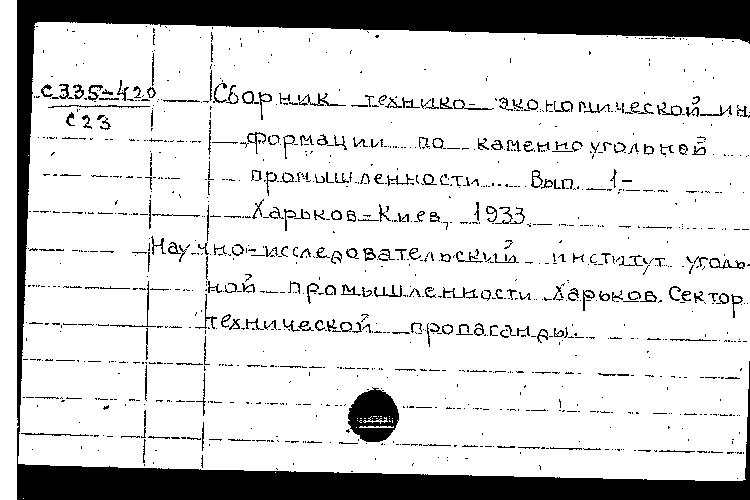 с335-420
с23
Сборник технико-экономической ин-
формации по каменноугольной
промышленности... Вып. 1-
Харьков-Киев, 1933.
Научно-исследовательский институт уголь-
ной промышленности. Харьков. Сектор
технической пропаганды.